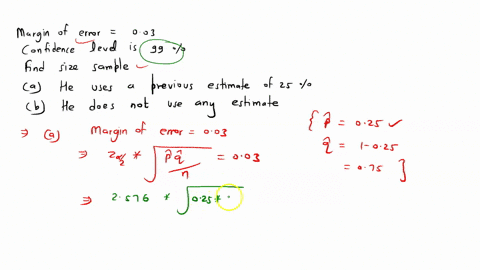 Margin of error = 0.03
Confidence level is 99 %
find size sample
(a) He uses a previous estimate of 25 %
(b) He does not use any estimate
⇒ (a) Margin of error = 0.03
⇒ Zα/2 * √(p̂ q̂ / n) = 0.03
⇒ 2.576 * √(0.25 *
{ p̂ = 0.25 ✓
q̂ = 1-0.25
= 0.75 }